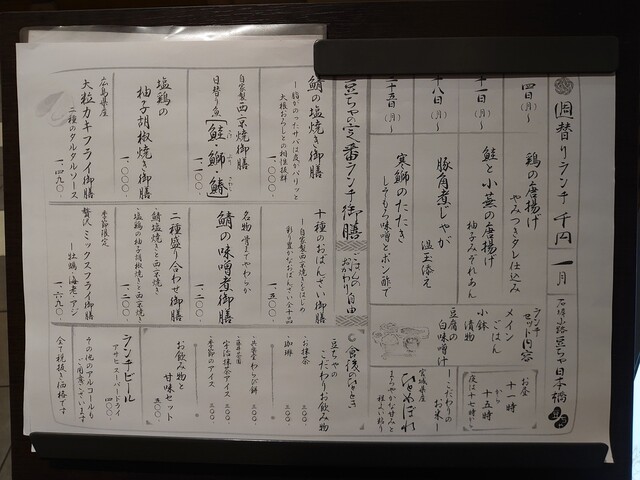 週替りランチ 千円 一月
石塀小路 豆ちゃ 日本橋
四日(月)〜
鶏の唐揚げ
やみつきタレ仕込み
十一日(月)〜
鮭と小蕪の唐揚げ
柚子みぞれあん
十八日(月)〜
豚角煮じゃが
温玉添え
二十五日(月)〜
寒鰤のたたき
しょもろ味噌とポン酢で
ランチセット内容
メイン
ごはん
小鉢
漬物
豆腐の白味噌汁
お昼
十一時
から
十五時
夜は十七時から
こだわりのお米
宮城県産
ひとめぼれ
豆ちゃの定番ランチ御膳
ごはんのおかわり自由
鯖の塩焼き御膳
脂がのったサバは皮がパリッと
大根おろしとの相性抜群
一、〇〇〇
自家製西京焼き御膳
日替り魚【鮭・鰤・鰆】
一、〇〇〇
塩鶏の
柚子胡椒焼き御膳
一、〇〇〇
広島県産
大粒カキフライ御膳
二種のタルタルソース
一、四九〇
十種のおばんざい御膳
自家製西京焼きとごはんに
彩り豊かなおばんざい全十品
一、五〇〇
名物 骨までやわらか
鯖の味噌煮御膳
一、二〇〇
二種盛り合わせ御膳
鯖塩焼きと西京焼き
塩鶏の柚子胡椒焼きと西京焼き
一、二〇〇
季節限定
贅沢ミックスフライ御膳
牡蠣・海老・アジ
一、六九〇
食後のひととき
豆ちゃの
こだわりお飲み物
お抹茶 三〇〇
珈琲 三〇〇
わらび餅 三〇〇
宇治抹茶アイス 三〇〇
季節のアイス 三〇〇
お飲み物
甘味セット
五〇〇
ランチビール
アサヒスーパードライ
四〇〇
その他のアルコールも
ご用意しています
全て税抜き価格です